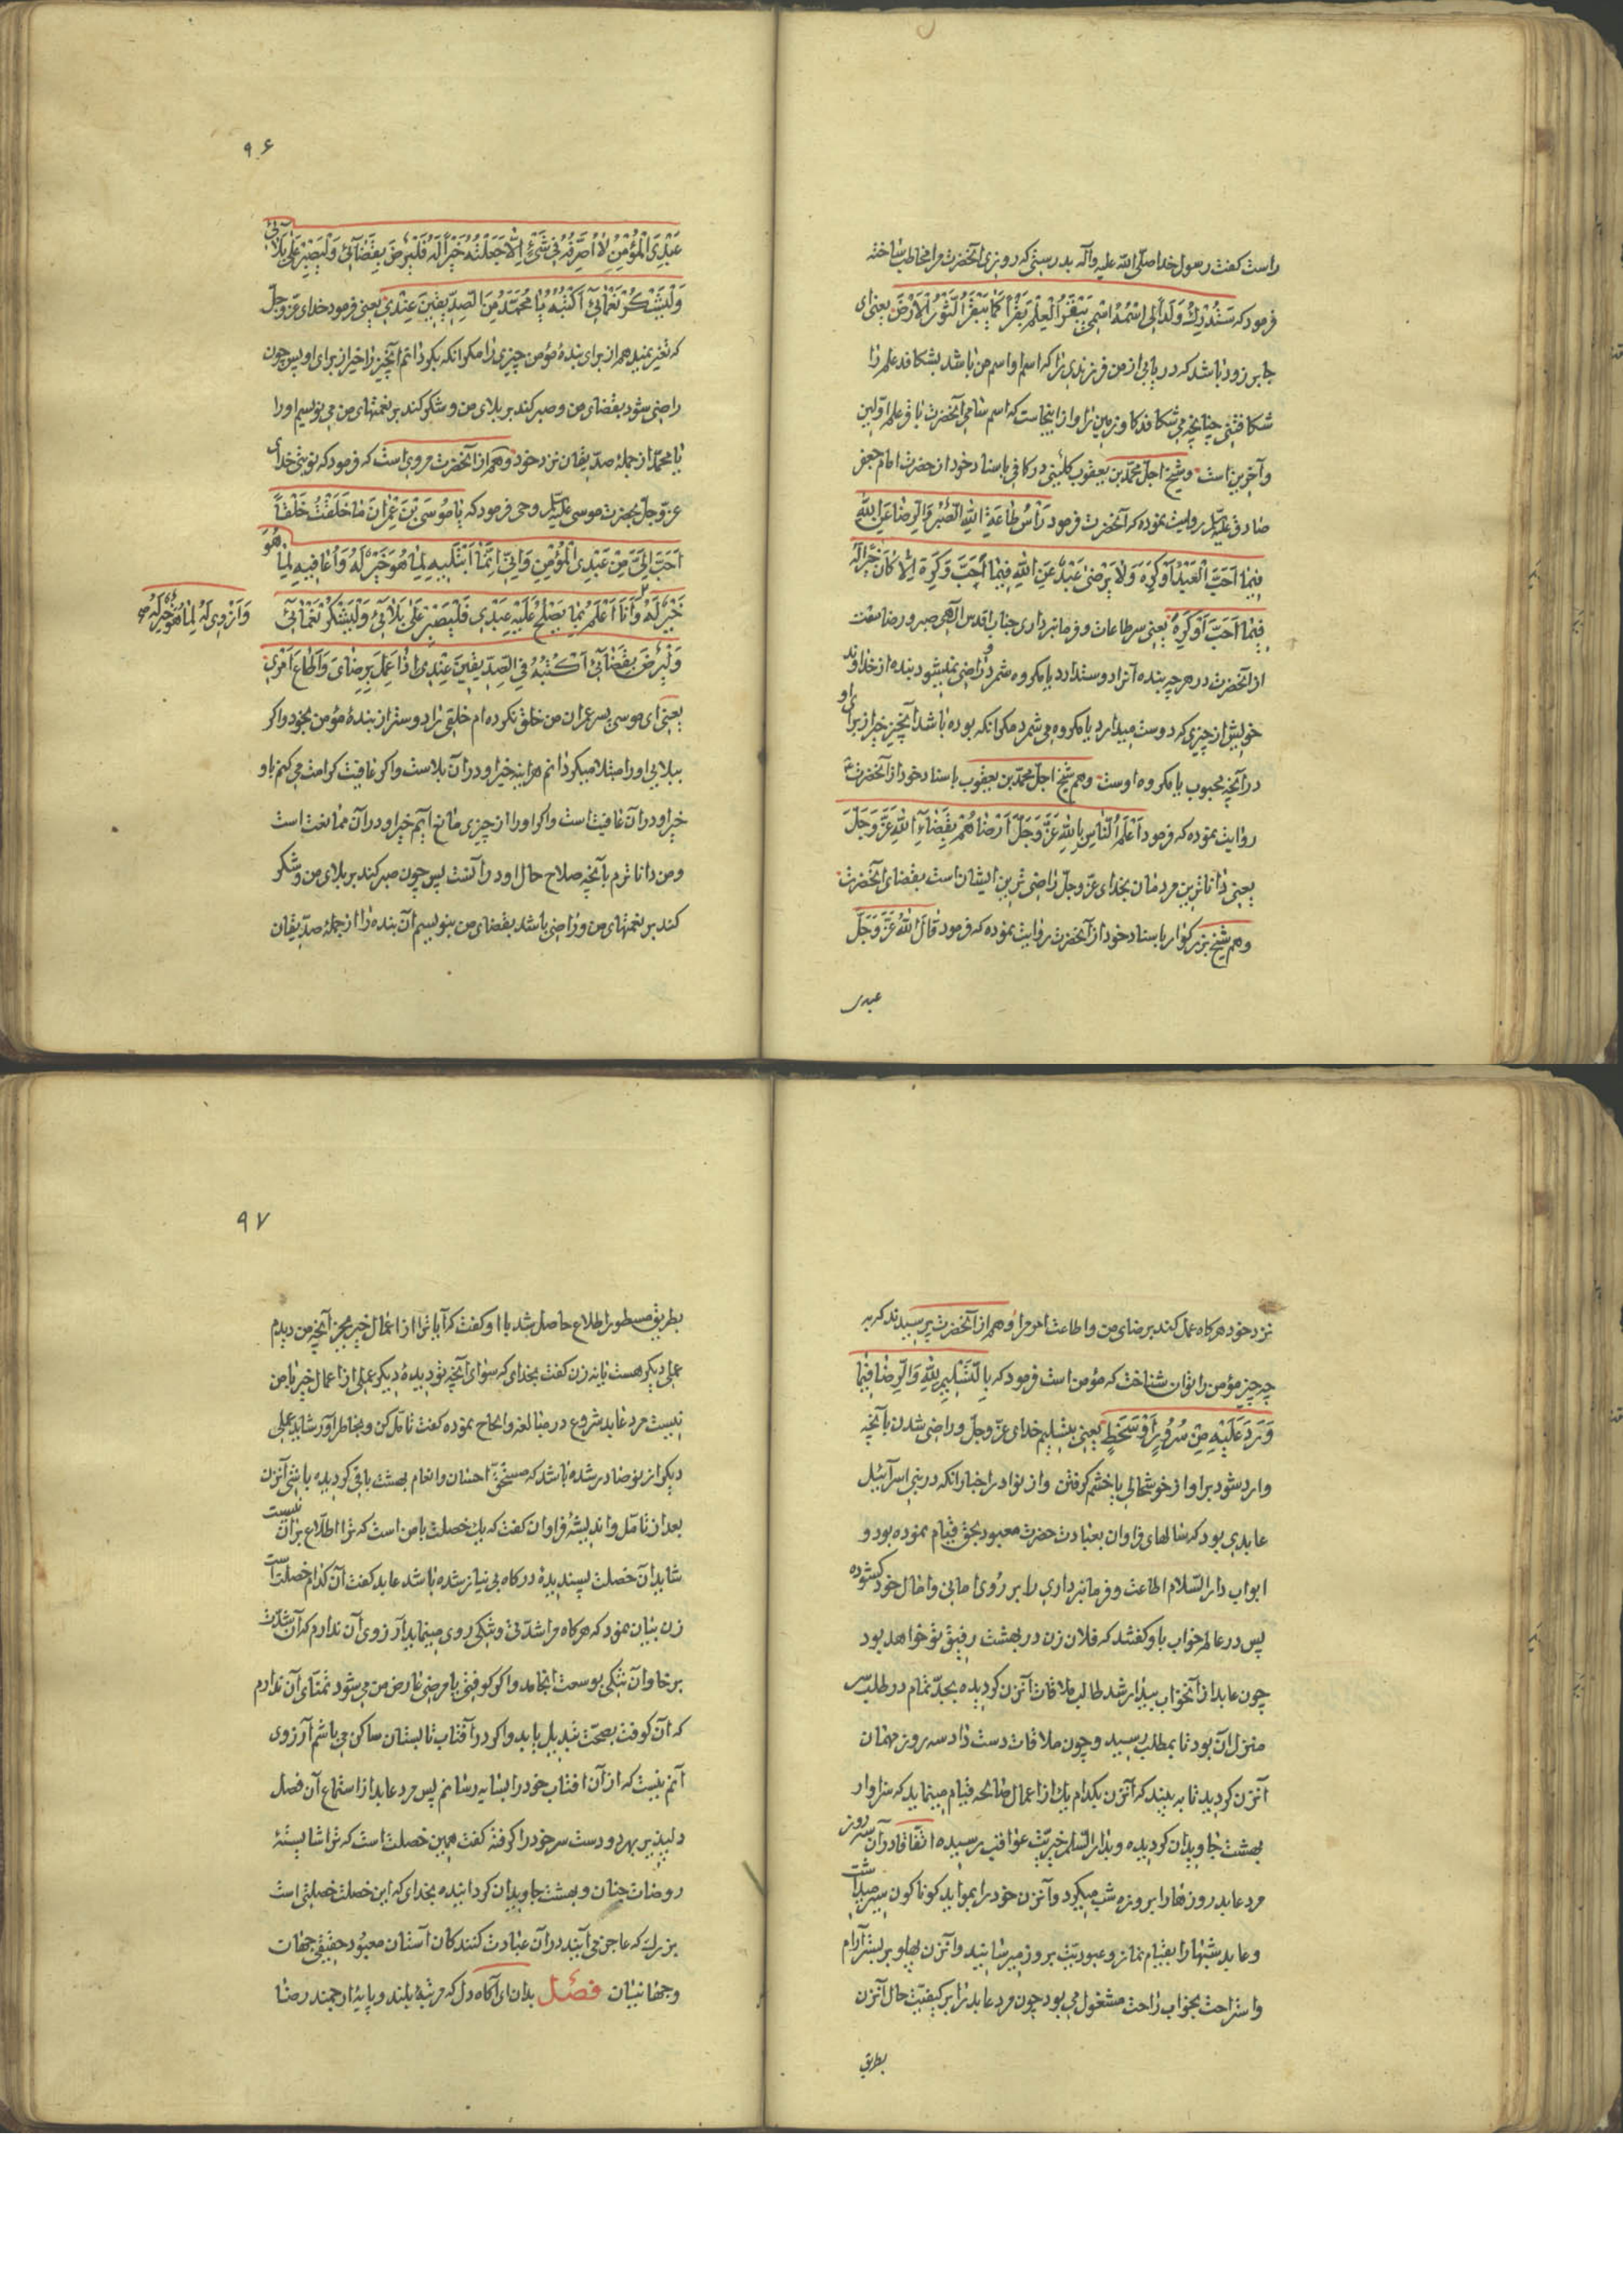 راست گفت رسول خدا صلّی الله علیه وآله بدرستی که روزی آنحضرت مرا مخاطب ساخته
فرمود که سَتُدْرِكُ وَلَداً لِی اسْمُهُ اسْمِی یَبْقَرُ الْعِلْمَ بَقْراً کَمَا یَبْقَرُ الثَّوْرُ الْاَرْضَ یعنی ای
جابر زود باشد که دریابی از من فرزندی را که اسم او اسم من باشد بشکافد علم را
شکافتنی چنانچه می شکافد کاو زمین را و از اینجاست که اسم سامی آنحضرت باقر علم اوّلین
وآخرین است وشیخ اجلّ محمّد بن یعقوب کلینی در کافی باسناد خود از حضرت امام جعفر
صادق علیه السّلم روایت نموده که آنحضرت فرمود رَأسُ طَاعَةِ اللهِ الصَّبْرُ وَالرِّضَا عَنِ اللهِ
فِیمَا اَحَبَّ الْعَبْدُ اَوْ کَرِهَ وَلَا یَرْضَی عَبْدٌ عَنِ اللهِ فِیمَا اَحَبَّ وَکَرِهَ اِلّا کَانَ خَیْراً لَهُ
فِیمَا اَحَبَّ اَوْ کَرِهَ یعنی سر طاعات و فرمانبرداری جناب اقدس الهی صبر و رضا مندیست
از آنحضرت در هر چه بنده آنرا دوست دارد یا مکروه شمرد و راضی نمیشود بنده از خداوند
خویش از چیزی که دوست میدارد یا مکروه می شمرد مکر انکه بوده باشد آنچیز خیر از برای او
در آنچه محبوب یا مکروه اوست وهم شیخ اجلّ محمّد بن یعقوب باسناد خود از آنحضرت
روایت نموده که فرمود اَعْلَمُ النَّاسِ بِاللهِ عَزَّ وَجَلَّ اَرْضَاهُمْ بِقَضَاءِ اللهِ عَزَّ وَجَلَّ
یعنی داناترین مردمان بخدای عزّ وجلّ راضی ترین ایشان است بقضای آنحضرت
وهم شیخ بزرکوار باسناد خود از آنحضرت روایت نموده که فرمود قَالَ اللهُ عَزَّ وَجَلَّ
عبدی
۹۶
عَبْدِیَ الْمُؤْمِنُ لَا اُصَرِّفُهُ فِی شَیْءٍ اِلَّا جَعَلْتُهُ خَیْراً لَهُ فَلْیَرْضَ بِقَضَائِی وَلْیَصْبِرْ عَلَی بَلَائِی
وَلْیَشْکُرْ نَعْمَائِی اَکْتُبْهُ یَا مُحَمَّدُ مِنَ الصِّدِّیقِینَ عِنْدِی یعنی فرمود خدای عزّ وجلّ
که تغیر نمیدهم از برای بندهٔ مؤمن چیزی را مکر انکه بکردانم آنچیز را خیر از برای او پس چون
راضی شود بقضای من وصبر کند بر بلای من وشکر کند بر نعمتهای من می نویسم او را
یا محمّد از جملهٔ صدّیقان نزد خود وهم از آنحضرت مرویست که فرمود که بدرستی خدای
عزّ وجلّ بحضرت موسی علیه السّلم وحی فرمود که یَا مُوسَی بْنَ عِمْرَانَ مَا خَلَقْتُ خَلْقاً
اَحَبَّ اِلَیَّ مِنْ عَبْدِیَ الْمُؤْمِنِ وَاِنِّی اِنَّمَا اَبْتَلِیهِ لِمَا هُوَ خَیْرٌ لَهُ وَاُعَافِیهِ لِمَا هُوَ
خَیْرٌ لَهُ وَاَنَا اَعْلَمُ بِمَا یَصْلُحُ عَلَیْهِ عَبْدِی فَلْیَصْبِرْ عَلَی بَلَائِی وَلْیَشْکُرْ نَعْمَائِی
وَاَزْوِی لَهُ لِمَا هُوَ خَیْرٌ لَهُ
وَلْیَرْضَ بِقَضَائِی اَکْتُبْهُ فِی الصِّدِّیقِینَ عِنْدِی اِذَا عَمِلَ بِرِضَایَ وَاَطَاعَ اَمْرِی
یعنی ای موسی پسر عمران من خلق نکرده ام خلقی را دوستر از بندهٔ مؤمن بخود واکر
ببلایی او را مبتلا میکردانم هر اینه خیر او در آن بلاست واکر عافیت کرامت می کنم باو
خیر او در آن عافیت است واکر او را از چیزی مانع آیم خیر او در آن ممانعت است
ومن داناترم بآنچه صلاح حال او در آنست پس چون صبر کند بر بلای من وشکر
کند بر نعمتهای من وراضی باشد بقضای من بنویسم آن بنده را از جملهٔ صدّیقان
نزد خود هرکاه عمل کند برضای من واطاعت امر من وهم از آنحضرت پرسیدند که به
چه چیز مؤمن را توان شناخت که مؤمن است فرمود که بِالتَّسْلِیمِ لِلّهِ وَالرِّضَا فِیمَا
وَرَدَ عَلَیْهِ مِنْ سُرُورٍ اَوْ سَخَطٍ یعنی بتسلیم خدای عزّ وجلّ وراضی شدن بآنچه
وارد شود بر او از خوشحالی یا خشم کرفتن واز نوادر اخبار انکه در بنی اسرآئیل
عابدی بود که سالهای فراوان بعبادت حضرت معبود بحق قیام نموده بود و
ابواب دار السّلام اطاعت وفرمانبرداری را بر روی امانی وامال خود کشوده
پس در عالم خواب باو کفتند که فلان زن در بهشت رفیق تو خواهد بود
چون عابد از آنخواب بیدار شد طالب ملاقات آنزن کردیده بجدّ تمام در طلب سر
منزل آن بود تا بمطلب رسید وچون ملاقات دست داد سه روز مهمان
آنزن کردید تا به بیند که آنزن بکدام یك از اعمال صالحه قیام مینماید که سزاوار
بهشت جاویدان کردیده وبدار السّلم خیریّت عواقب رسیده اتّفاقا در آن سه روز
مرد عابد روزها را بروزه شب میکرد وآنزن خود را بموائد کوناکون سیر میداشت
وعابد شبها را بقیام نماز وعبودیّت بروز میرسانید وآنزن پهلو بر بستر آرام
واستراحت بخواب راحت مشغول می بود چون مرد عابد را بر کیفیّت حال آنزن
بطریق
۹۷
بطریق مسطور اطلاع حاصل شد با او کفت که آیا ترا از اعمال خیر بجز آنچه من دیدم
عملی دیکر هست یا نه زن کفت بخدای که سوای آنچه تو دیدهٔ دیکر عملی از اعمال خیر با من
نیست مرد عابد شروع در مبالغه والحاح نموده کفت تأمّل کن وبخاطر آور شاید عملی
دیکر از تو صادر شده باشد که مستحقّ احسان وانعام بهشت باقی کردیده باشی آنزن
بعد از تامّل واندیشهٔ فراوان کفت که یك خصلت با من است که ترا اطلاع بر آن نیست
شاید آن خصلت پسندیدهٔ درکاه بی نیاز شده باشد عابد کفت آن کدام خصلت است
زن بیان نمود که هرکاه مرا شدّتی وتنکی روی مینماید آرزوی آن ندارم که آن شدّت
برخا وآن تنکی بوسعت انجامد واکر کوفتی یا مرضی عارض من می شود تمنّای آن ندارم
که آن کوفت بصحّت تبدیل یابد واکر در آفتاب تابستان ساکن می باشم آرزوی
آنم نیست که از آن افتاب خود را بسایه رسانم پس مرد عابد از استماع آن فصل
دلپذیر بهر دو دست سر خود را کرفته کفت همین خصلت است که ترا شایستهٔ
روضات جنان وبهشت جاویدان کردانیده بخدای که این خصلت خصلتی است
بزرك که عاجز می آیند در آن عبادت کنندکان آستان معبود حقیقی جهان
وجهانیان فصل بدان ای آکاه دل که مرتبهٔ بلند وپایهٔ ارجمند رضا